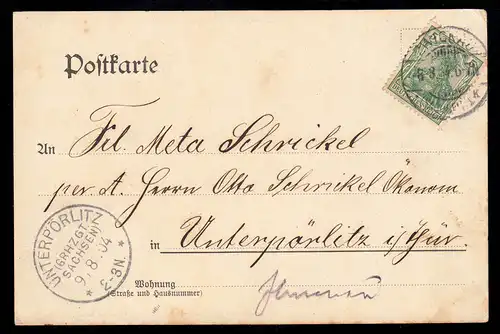 Postkarte
An Frl Meta Schrickel
per A. Herrn Otto Schrickel Ökonom
in Unterpörlitz i/Thür.
Wohnung
(Straße und Hausnummer)
Ilmenau
UNTERPÖRLITZ
(GRHZGT.
SACHSEN)
9.8.04
2-3N.